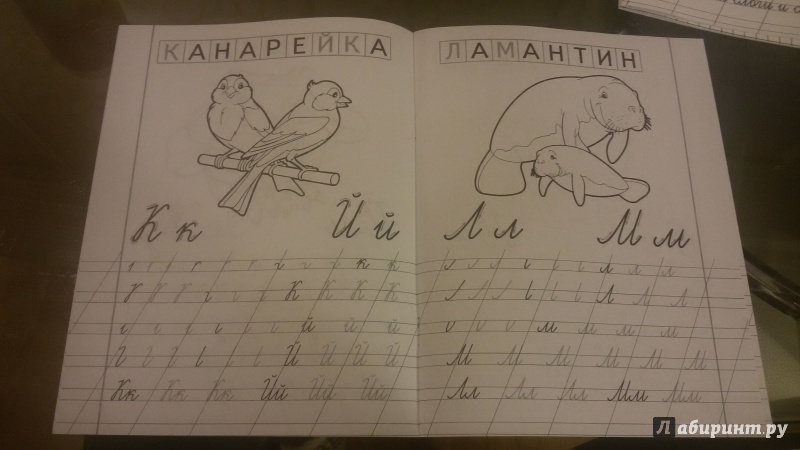 КАНАРЕЙКА
К к Й й
к к
К К К К К
й й й й
Й Й Й Й Й
Кк Кк Кк Йй Йй Йй
ЛАМАНТИН
Л л М м
л л л
Л Л Л
м м м м
М М М М М М М
Лл Лл Лл Мм Мм
Лабиринт.ру